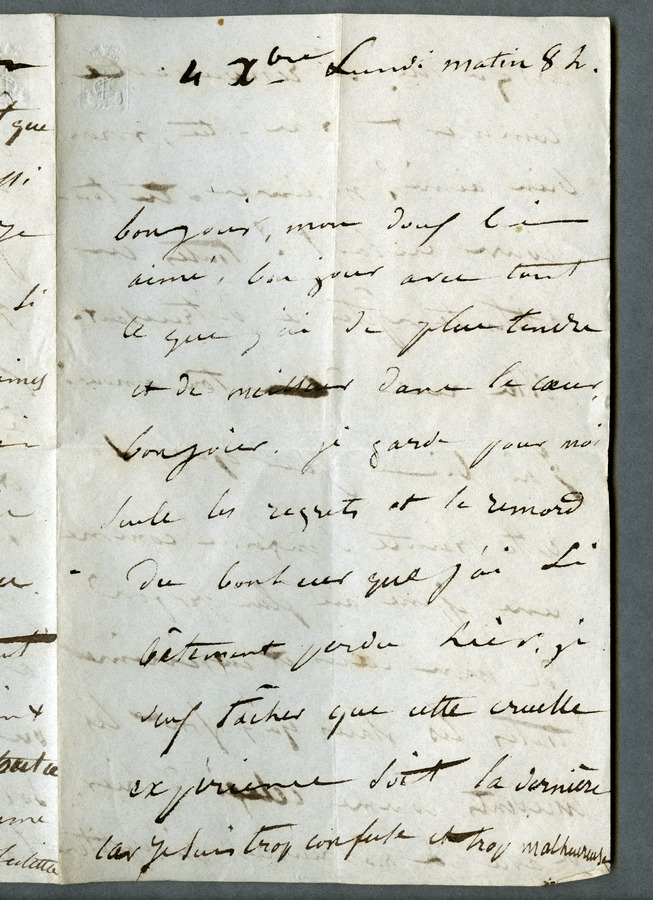 4 Xbre Lundi matin 8 h.
bonjour, mon doux bien
aimé, bonjour avec tout
ce que j'ai de plus tendre
et de meilleur dans le cœur,
bonjour. je garde pour moi
seule les regrets et le remord
du bonheur que j'ai si
bêtement perdu hier. je
veux tâcher que cette cruelle
expérience soit la dernière
car je suis trop confuse et trop malheureuse
que
si